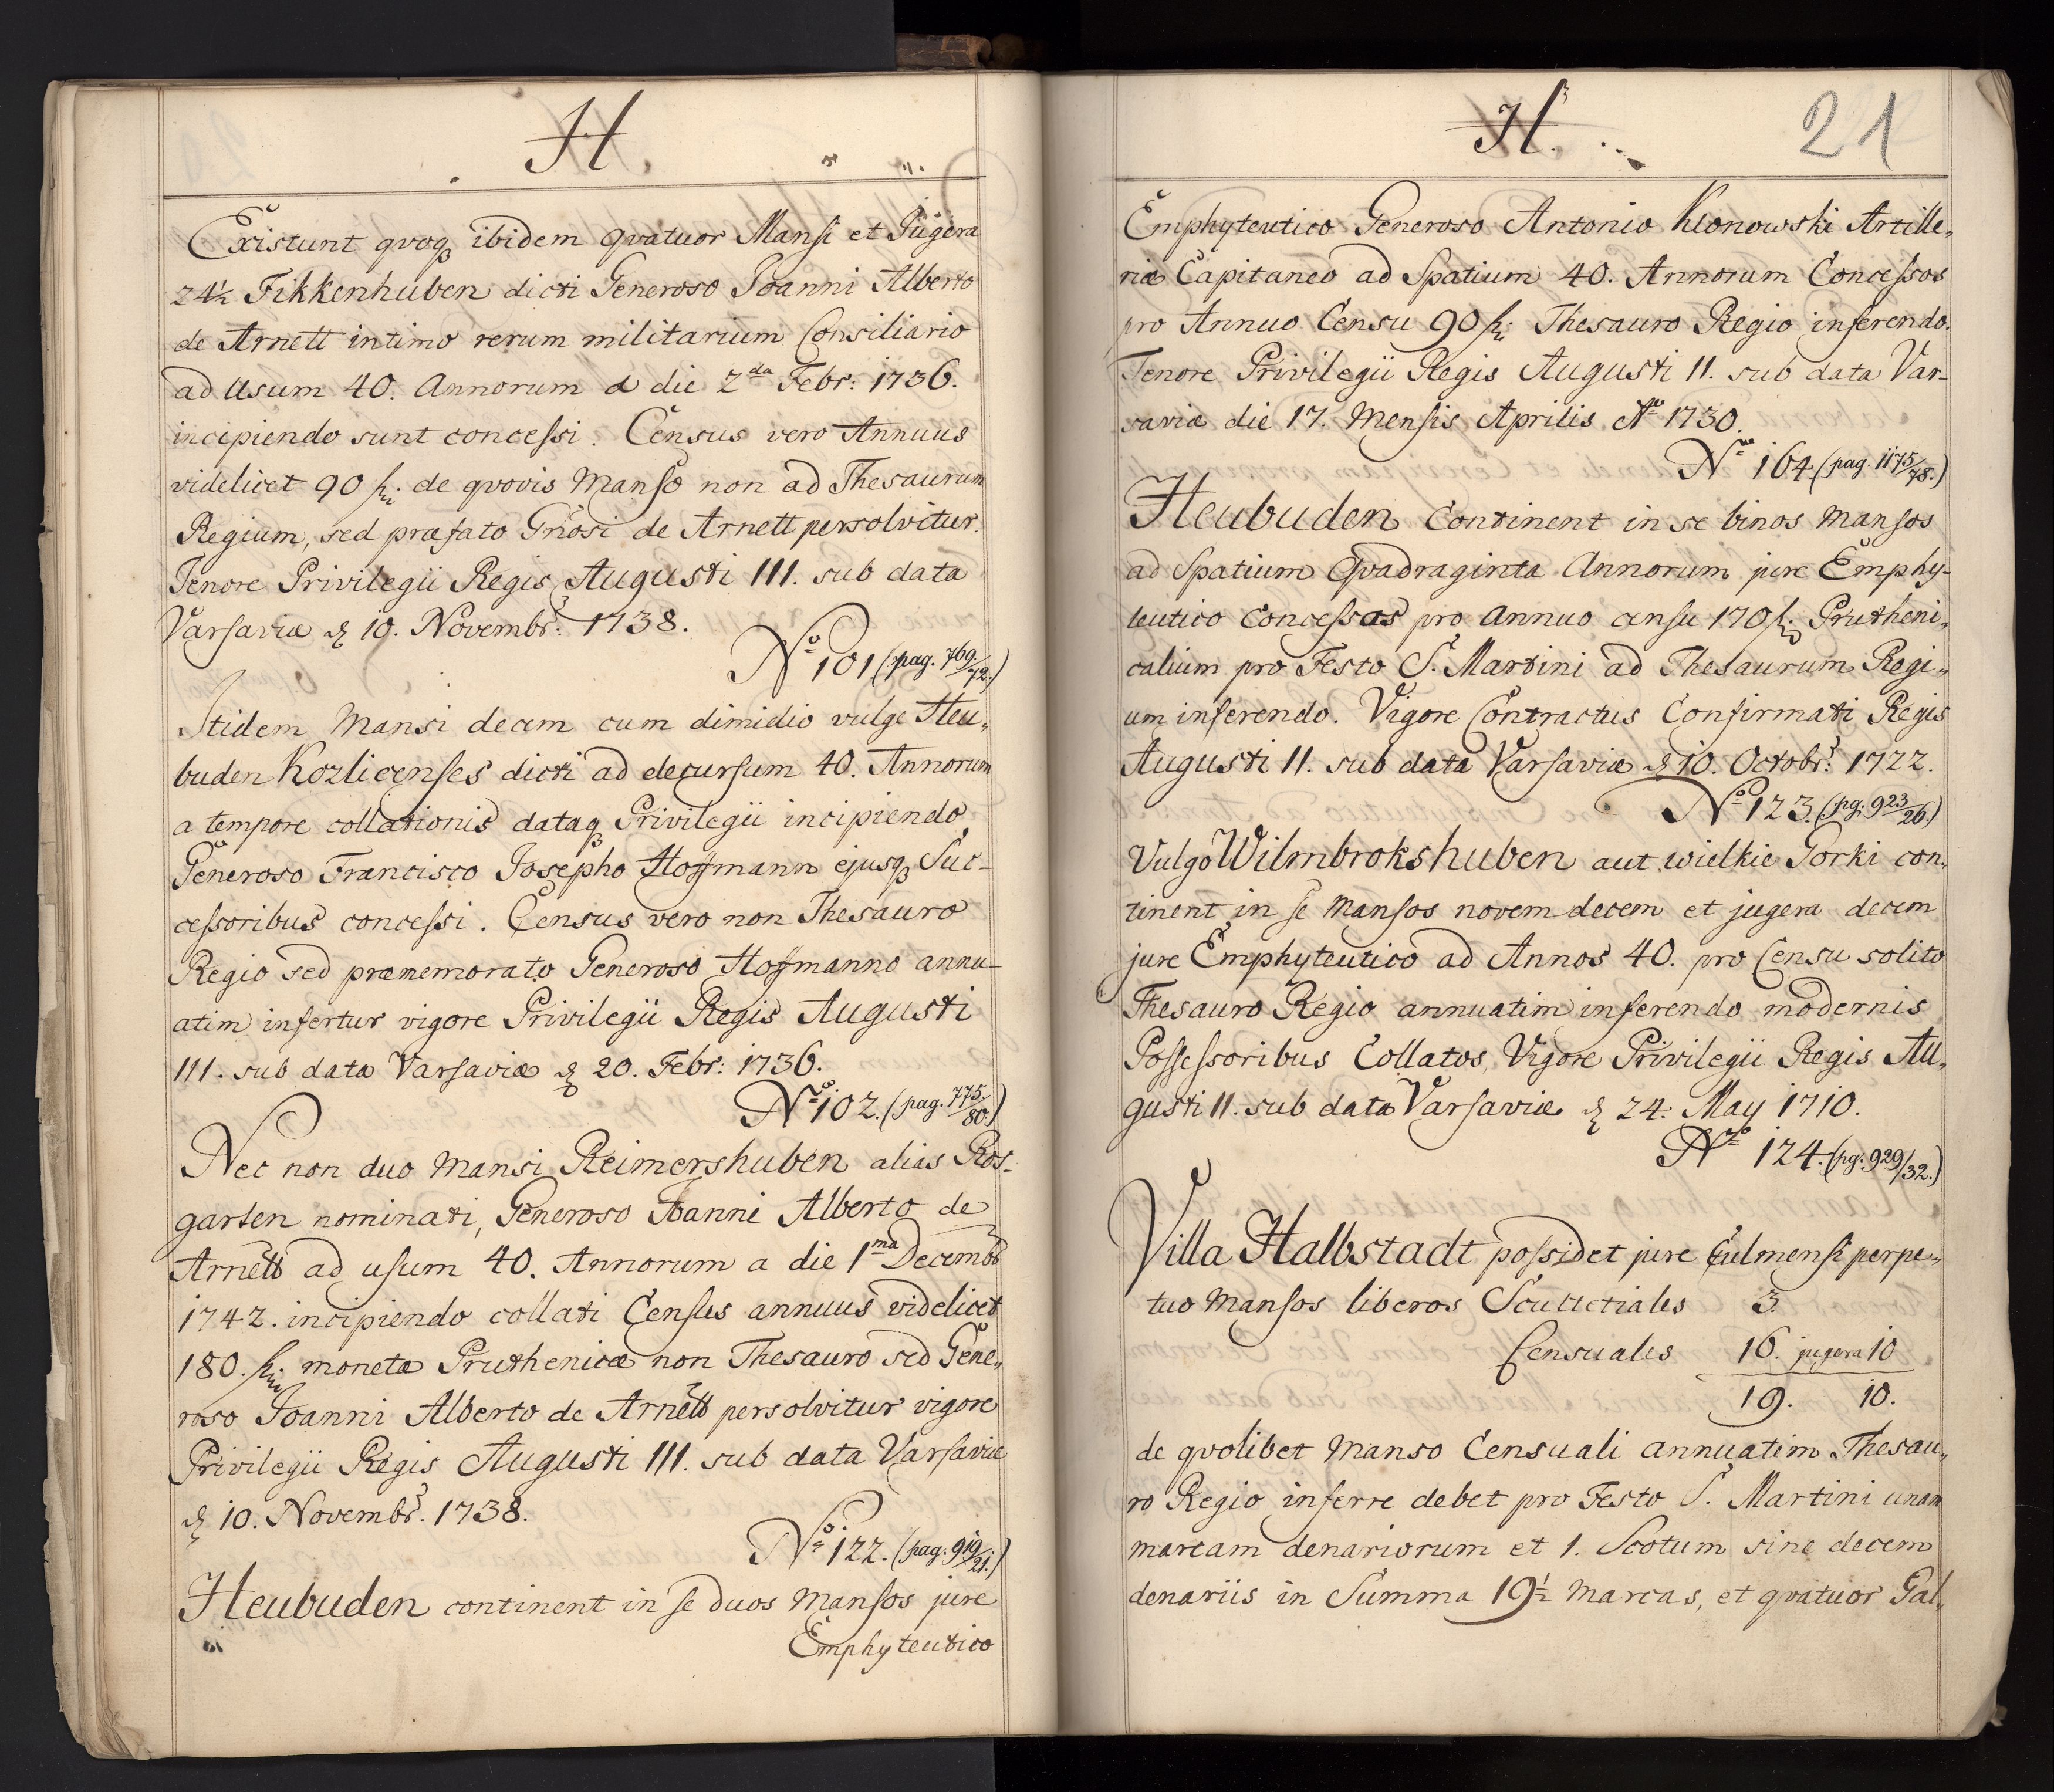 H.
Existunt qvoqȝ ibidem qvatuor Mansi et Jugera
24½ Fikkenhuben dicti Generoso Joanni Alberto
de Arnett intimo rerum militarium Consiliario
ad usum 40. Annorum a die 2da Febr: 1736.
incipiendo sunt concessi. Census vero Annuus
videlicet 90 de qvovis Manso non ad Thesaurum
Regium, sed præfato Gnosi de Arnett persolvitur.
Tenore Privilegii Regis Augusti III. sub data
Varsaviæ d 10. Novembr: 1738.
No 101 (pag. 769/72.)
Itidem Mansi decem cum dimidio vulgo Heu-
buden Kozlicenses dicti ad decursum 40. Annorum
a tempore collationis datæqȝ Privilegii incipiendo
Generoso Francisco Josepho Hoffmann ejusqȝ Suc-
cessoribus concessi. Census vero non Thesauro
Regio sed præmemorato Generoso Hoffmanno annu-
atim infertur vigore Privilegii Regis Augusti
III. sub data Varsaviæ d 20. Febr: 1736.
No 102. (pag. 775/80.)
Nec non duo Mansi Reimershuben alias Ros-
garten nominati, Generoso Joanni Alberto de
Arnett ad usum 40. Annorum a die 1ma Decembr
1742. incipiendo collati Census annuus videlicet
180. monetæ Pruthenicæ non Thesauro sed Gene-
roso Joanni Alberto de Arnett persolvitur vigore
Privilegii Regis Augusti III. sub data Varsaviæ
d 10. Novembr. 1738.
No 122. (pag. 919/21.)
Heubuden continent in se duos Mansos jure
Emphyteutico
H.
21
Emphyteutico Generoso Antonio Klonowski Artille-
riæ Capitaneo ad Spatium 40. Annorum Concessos
pro Annuo Censu 90 Thesauro Regio inferendo.
Tenore Privilegii Regis Augusti II. sub data Var-
saviæ die 17. Mensis Aprilis Ao 1730.
No 164 (pag. 1175/78.)
Heubuden Continent in se binos Mansos
ad Spatium Qvadraginta Annorum jure Emphy-
teutico Concessos pro Annuo censu 170 Prutheni-
calium pro Festo S. Martini ad Thesaurum Regi-
um inferendo. Vigore Contractus Confirmati Regis
Augusti II. sub data Varsaviæ d 10. Octobr: 1722.
No 123. (pg. 923/26.)
Vulgo Wilmbrokshuben aut wielkie Gorki con-
tinent in se Mansos novem decem et jugera decem
jure Emphyteutico ad Annos 40. pro Censu solito
Thesauro Regio annuatim inferendo modernis
Possessoribus Collatos, Vigore Privilegii Regis Au-
gusti II. sub data Varsaviæ d 24. May 1710.
No 124. (pg. 929/32.)
Villa Halbstadt possidet jure Culmensi perpe-
tuo Mansos liberos Scultetiales 3.
Censuales 16. jugera 10
19. 10.
de qvolibet Manso Censuali annuatim Thesau-
ro Regio inferre debet pro Festo S. Martini unam
marcam denariorum et 1. Scotum sine decem
denariis in Summa 19½ Marcas, et qvatuor Gal-